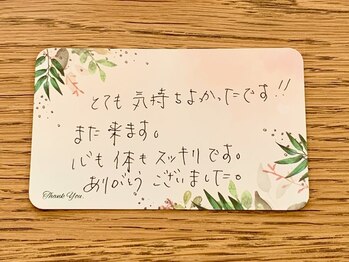 とても 気持ちよかったです!!
また来ます。
心も体もスッキリです。
ありがとうございました。
Thank You.